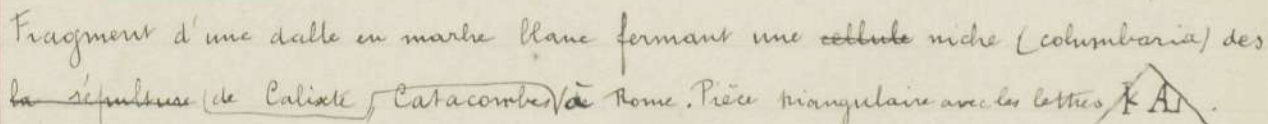 Fragment d'une dalle en marbre blanc fermant une cellule niche (columbaria) des
la sépulture (de Calixte, Catacombes à Rome. Pièce triangulaire avec les lettres K A.